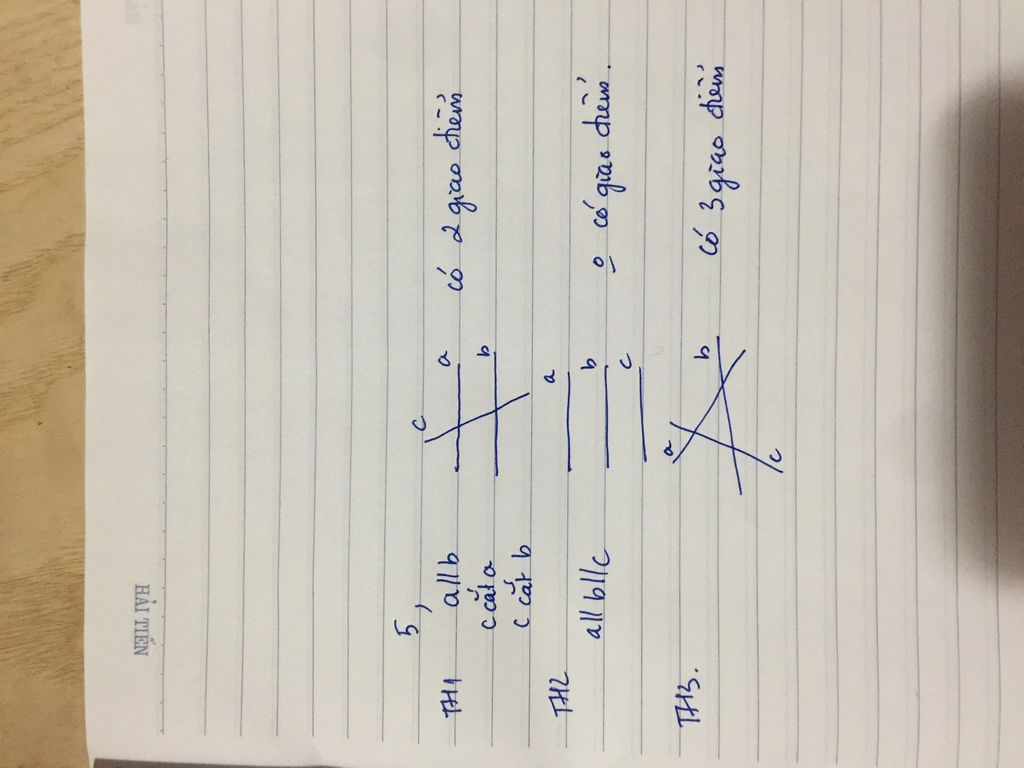 HẢI TIẾN
5,
TH1 a//b c a có 2 giao điểm
c cắt a b
c cắt b
TH2 a// b//c a o có giao điểm.
b
c
TH3. a b c có 3 giao điểm